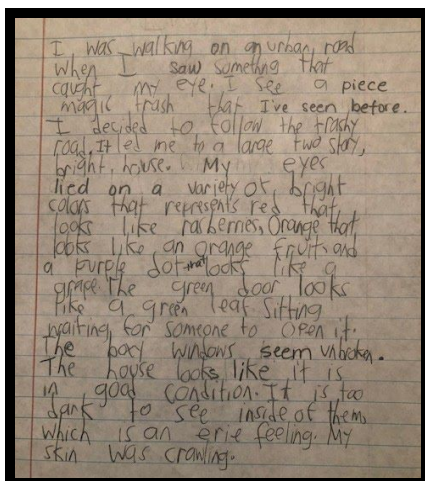 I was walking on an urban road
when I saw something that
caught my eye. I see a piece
magic trash that I've seen before.
I decided to follow the trashy
road. It led me to a large two story,
bright, house. My eyes
lied on a variety of, bright
colors that represents red that,
looks like rasberries, Orange that,
looks like an orange fruit, and
a purple dot that looks like a
grape. The green door looks
like a green leaf. Sitting
waiting for someone to open it.
The boxy windows seem unbroken.
The house looks like it is
in good condition. It is too
dark to see inside of them,
which is an erie feeling. My
skin was crawling.